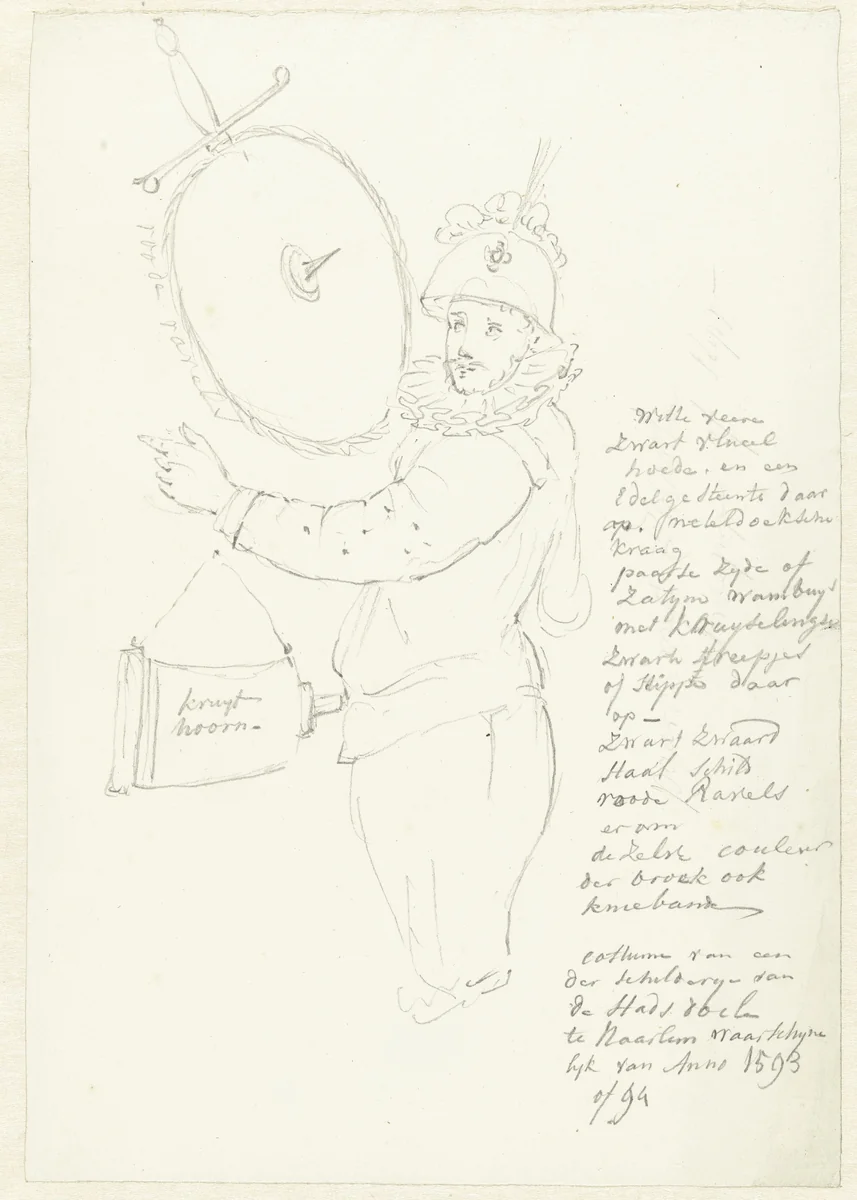 roode ravels
kruyt
hoorn-
Witte veere
Zwart vlueel
hoede. en een
Edelgesteente daar
op. neteldoeksche
kraag
paarse zyde of
Zatyne wambuys
met kruyselingse
Zwarte streepjes
of stippe daar
op -
Zwart Zwaard
Staal Schild
roode Ravels
er om
de zelve couleur
der broek ook
kniebande
costume van een
der schilderye van
de Stads doele
te Haarlem waarschyne
lyk van Anno 1593
of 94